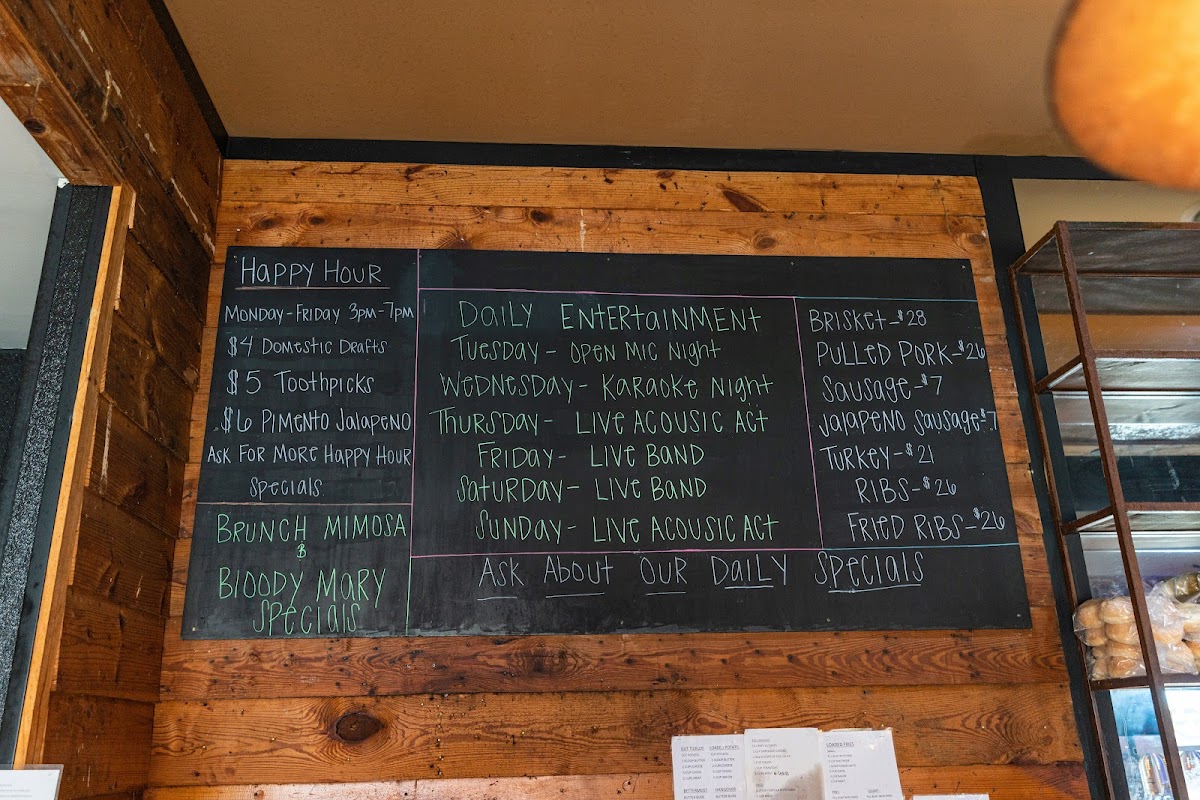 Happy Hour
Monday-Friday 3pm-7pm
$4 Domestic Drafts
$5 Toothpicks
$6 Pimento Jalapeno
Ask For More Happy Hour
Specials.
Brunch Mimosa
&
Bloody Mary
Specials
Daily Entertainment
Tuesday - Open Mic Night
Wednesday - Karaoke Night
Thursday - Live Acousic Act
Friday - Live Band
Saturday - Live Band
Sunday - Live Acousic Act
Brisket-$28
Pulled Pork-$26
Sausage-$7
Jalapeno Sausage-$7
Turkey-$21
Ribs-$26
Fried Ribs-$26
Ask About Our Daily Specials
Loaded Fries